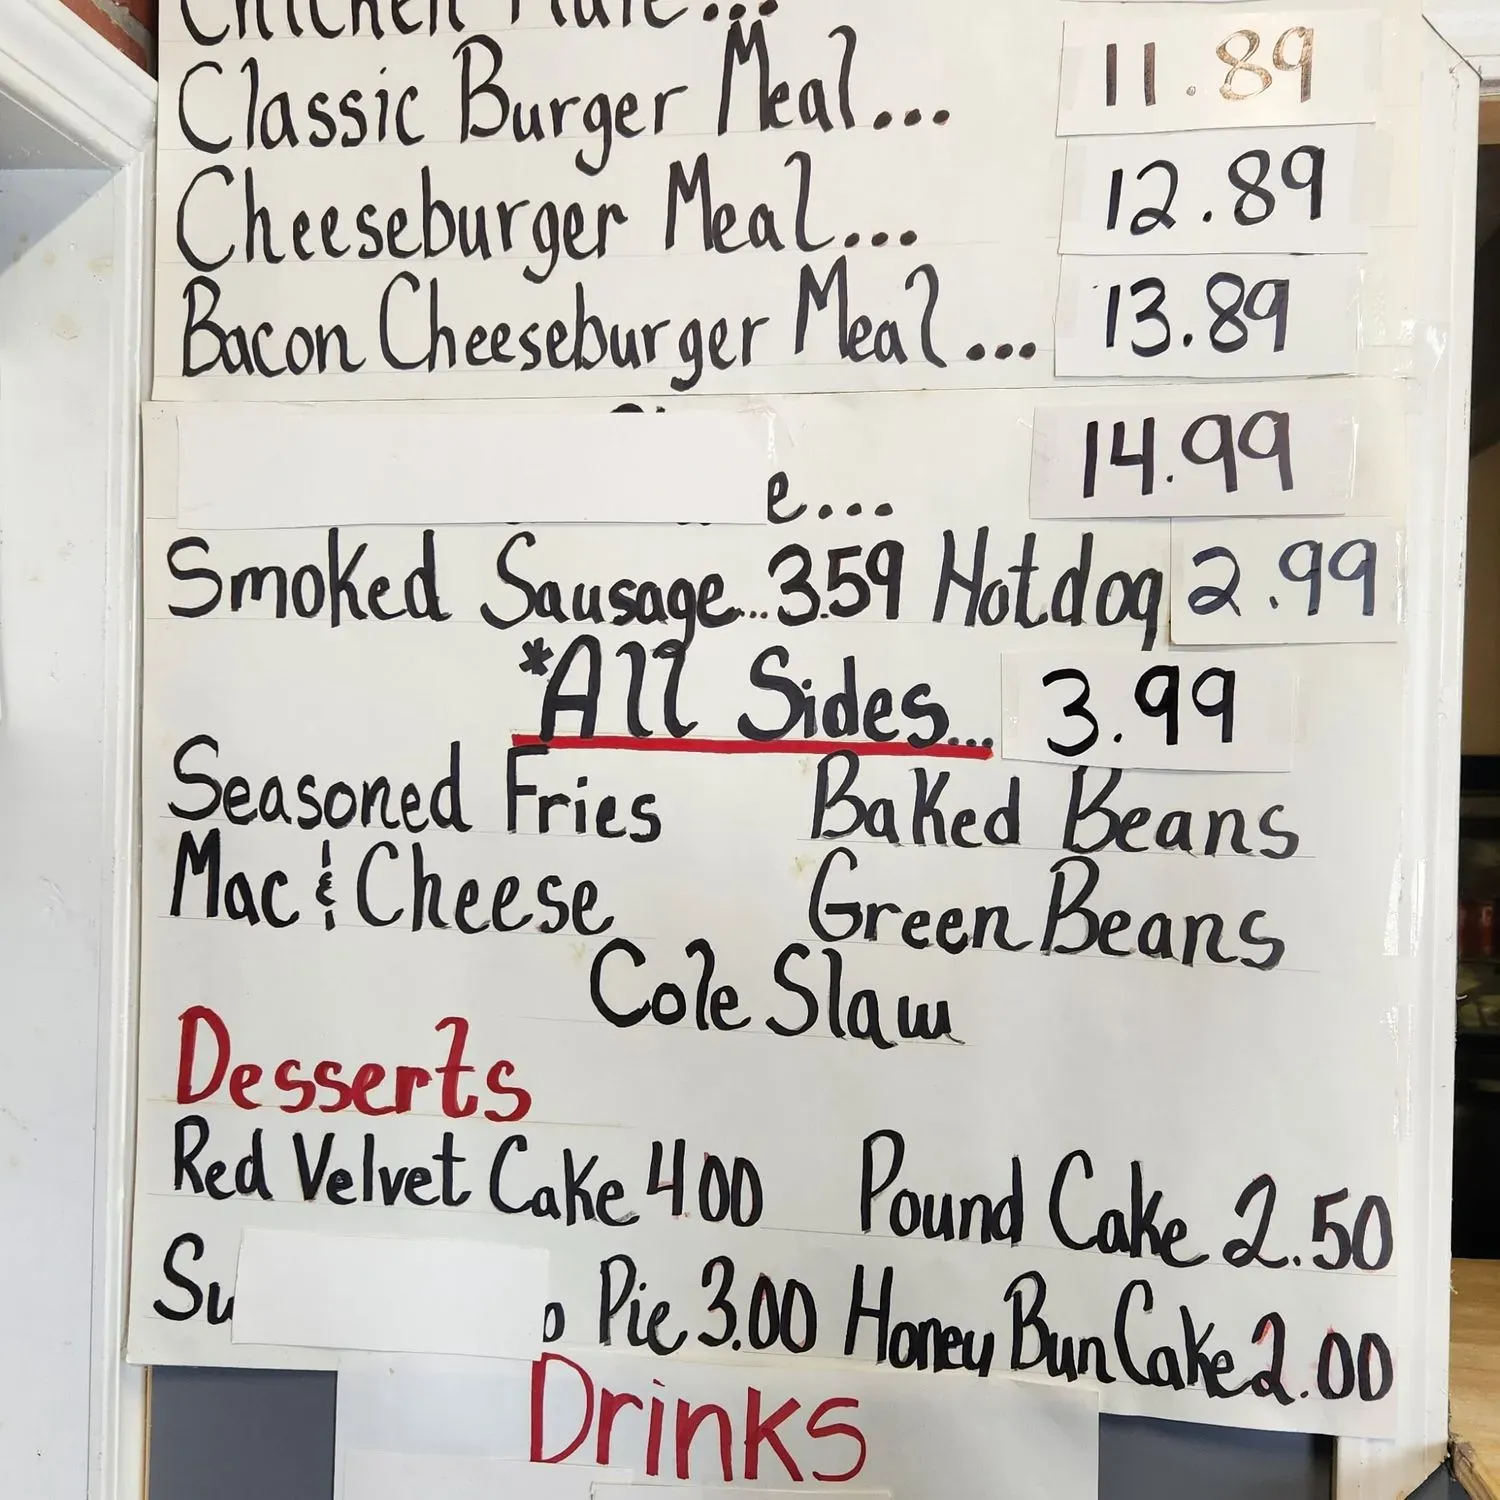 Chicken Plate...
Classic Burger Meal... 11.89
Cheeseburger Meal... 12.89
Bacon Cheeseburger Meal... 13.89
e... 14.99
Smoked Sausage...3.59 Hotdog 2.99
*All Sides... 3.99
Seasoned Fries Baked Beans
Mac & Cheese Green Beans
Cole Slaw
Desserts
Red Velvet Cake 4.00 Pound Cake 2.50
Pie 3.00 Honey Bun Cake 2.00
Drinks